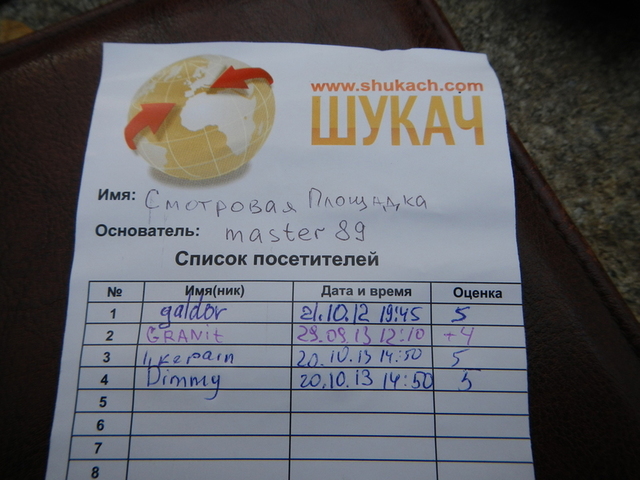 www.shukach.com
ШУКАЧ
Имя: Смотровая Площадка
Основатель: master 89
Список посетителей
№ Имя(ник) Дата и время Оценка
1 galdor 21.10.12 19:45 5
2 GRANit 29.09.13 12:10 +4
3 20.10.13 14:50 5
4 Dimmy 20.10.13 14:50 5
5
6
7
8